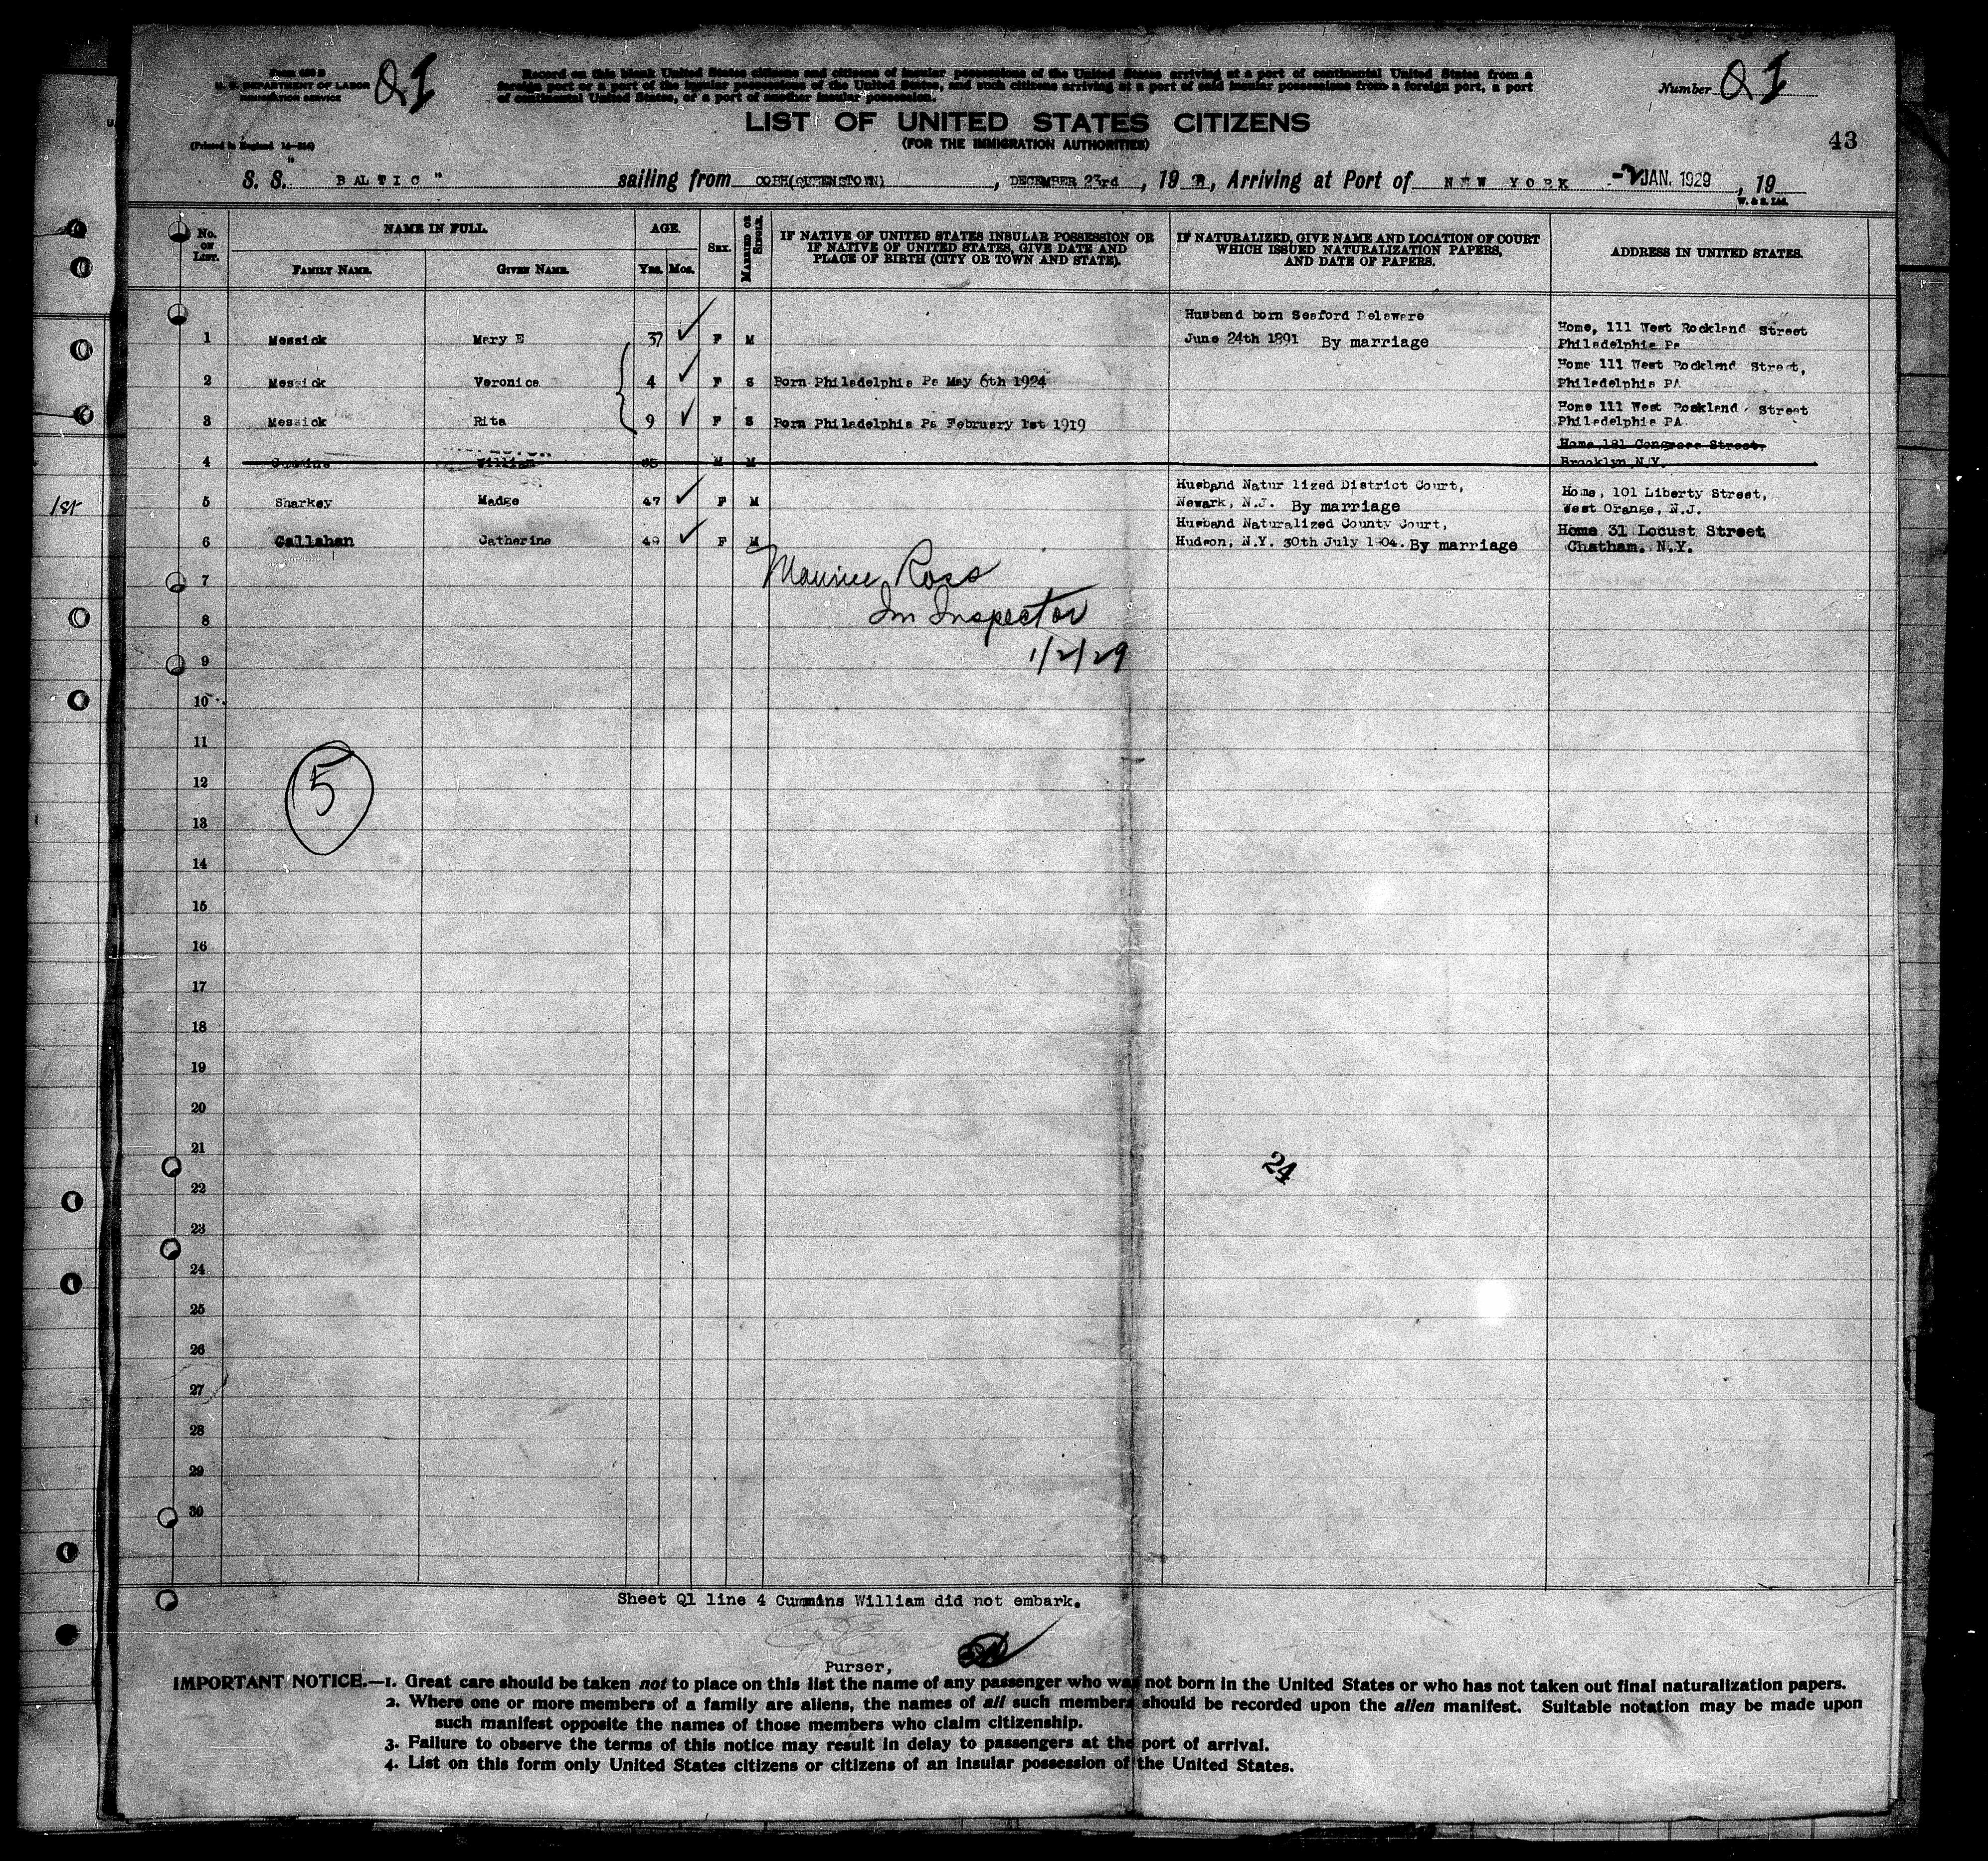 Form 630 B
U. S. DEPARTMENT OF LABOR
IMMIGRATION SERVICE
Q I
Record on this blank United States citizens and citizens of insular possessions of the United States arriving at a port of continental United States from a
foreign port or a port of the insular possessions of the United States, and such citizens arriving at a port of said insular possessions from a foreign port, a port
of continental United States, or a port of another insular possession.
Number Q I
LIST OF UNITED STATES CITIZENS
(FOR THE IMMIGRATION AUTHORITIES)
43
(Printed in England
S. S. "BALTIC" sailing from COBH(QUEENSTOWN), DECEMBER 23rd, 19 , Arriving at Port of NEW YORK -2 JAN. 1929, 19
W. & S. Ltd.
No. ON LIST.
NAME IN FULL.
FAMILY NAME.
GIVEN NAME.
AGE
YRS. MOS.
SEX.
MARRIED OR SINGLE.
IF NATIVE OF UNITED STATES INSULAR POSSESSION OR
IF NATIVE OF UNITED STATES, GIVE DATE AND
PLACE OF BIRTH (CITY OR TOWN AND STATE).
IF NATURALIZED, GIVE NAME AND LOCATION OF COURT
WHICH ISSUED NATURALIZATION PAPERS,
AND DATE OF PAPERS.
ADDRESS IN UNITED STATES.
Husband born Seaford Delaware
1 Messick Mary E 37 F M June 24th 1891 By marriage Home, 111 West Rockland Street
Philadelphia Pa
2 Messick Veronica 4 F S Born Philadelphia Pa May 6th 1924 Home 111 West Rockland Street,
Philadelphia PA
3 Messick Rita 9 F S Born Philadelphia Pa February 1st 1919 Home 111 West Rockland Street
Philadelphia PA.
4 Cummins William M M Home 181 Congress Street,
Brooklyn N.Y.
1st
5 Sharkey Madge 47 F M Husband Natur lized District Court,
Newark, N.J. By marriage Home, 101 Liberty Street,
West Orange, N.J.
6 Callahan Catherine 49 F M Husband Naturalized County Court,
Hudson, N.Y. 30th July 1904. By marriage Home 31 Locust Street
Chatham. N.Y.
Maurice Ross
Im Inspector
1/2/29
7
8
9
10
11
5
12
13
14
15
16
17
18
19
20
21
24
22
23
24
25
26
27
28
29
30
Sheet Q1 line 4 Cummins William did not embark.
Purser,
IMPORTANT NOTICE.—1. Great care should be taken not to place on this list the name of any passenger who was not born in the United States or who has not taken out final naturalization papers.
2. Where one or more members of a family are aliens, the names of all such members should be recorded upon the alien manifest. Suitable notation may be made upon
such manifest opposite the names of those members who claim citizenship.
3. Failure to observe the terms of this notice may result in delay to passengers at the port of arrival.
4. List on this form only United States citizens or citizens of an insular possession of the United States.